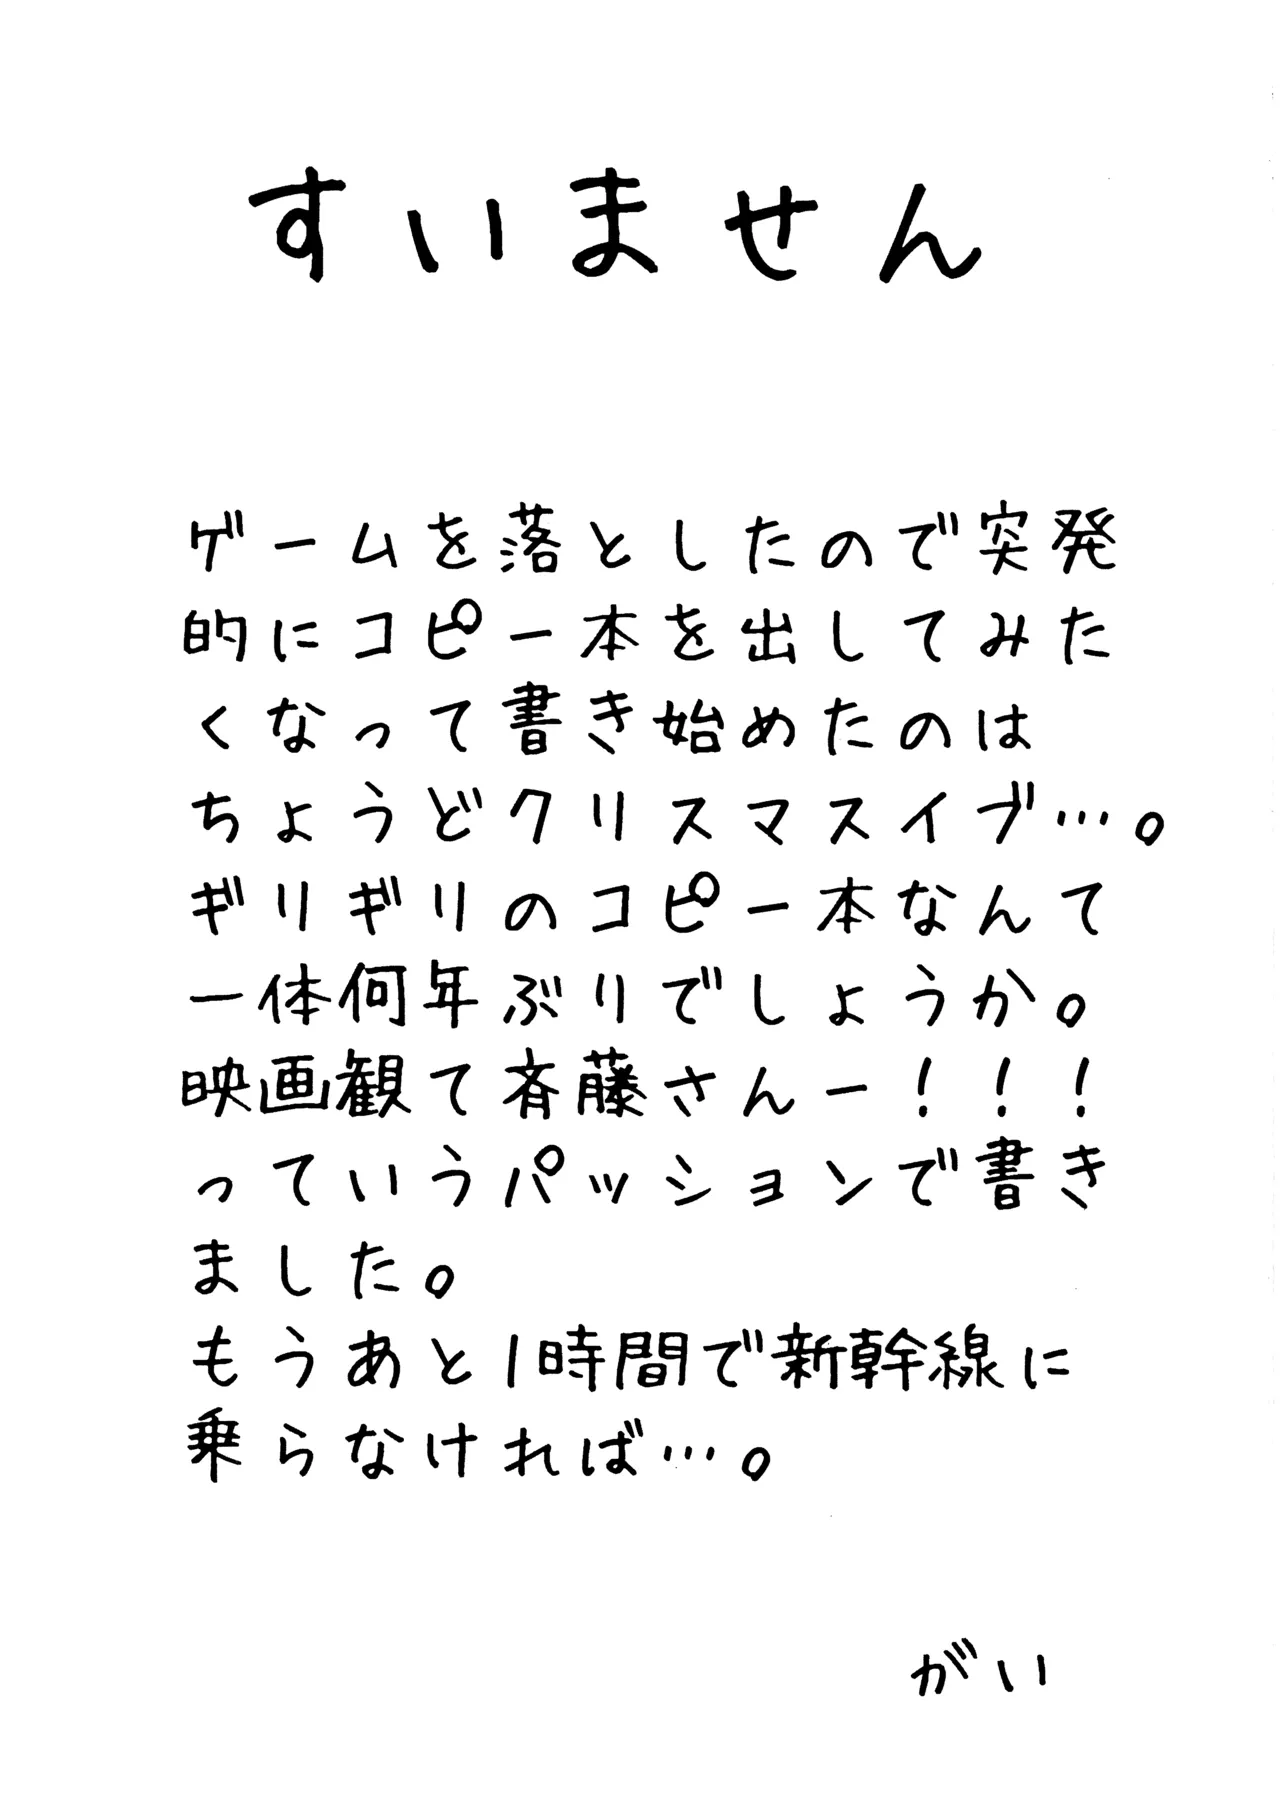 すいません
ゲームを落としたので突発
的にコピー本を出してみた
くなって書き始めたのは
ちょうどクリスマスイブ…。
ギリギリのコピー本なんて
一体何年ぶりでしょうか。
映画観て斉藤さんー！！！
っていうパッションで書き
ました。
もうあと1時間で新幹線に
乗らなければ…。
がい